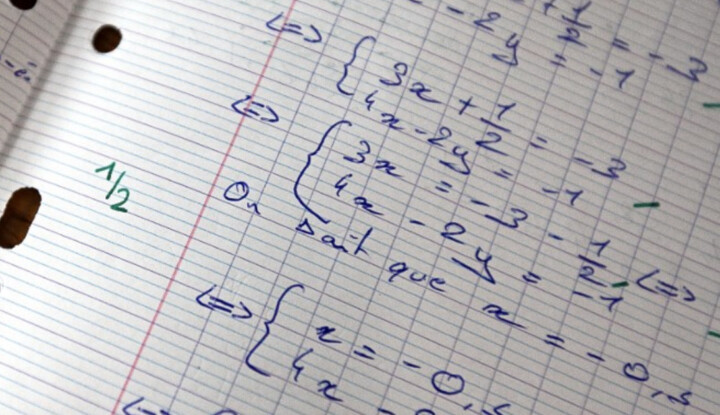 + 1/2 = -3
- 2y = -1
<=> { 3x + 1/2 = -3
4x - 2y = -1
<=> { 3x = -3 - 1/2 <=>
4x - 2y = -1
1/2
On sait que x = -0,5
<=> { x = -0,5
4x -